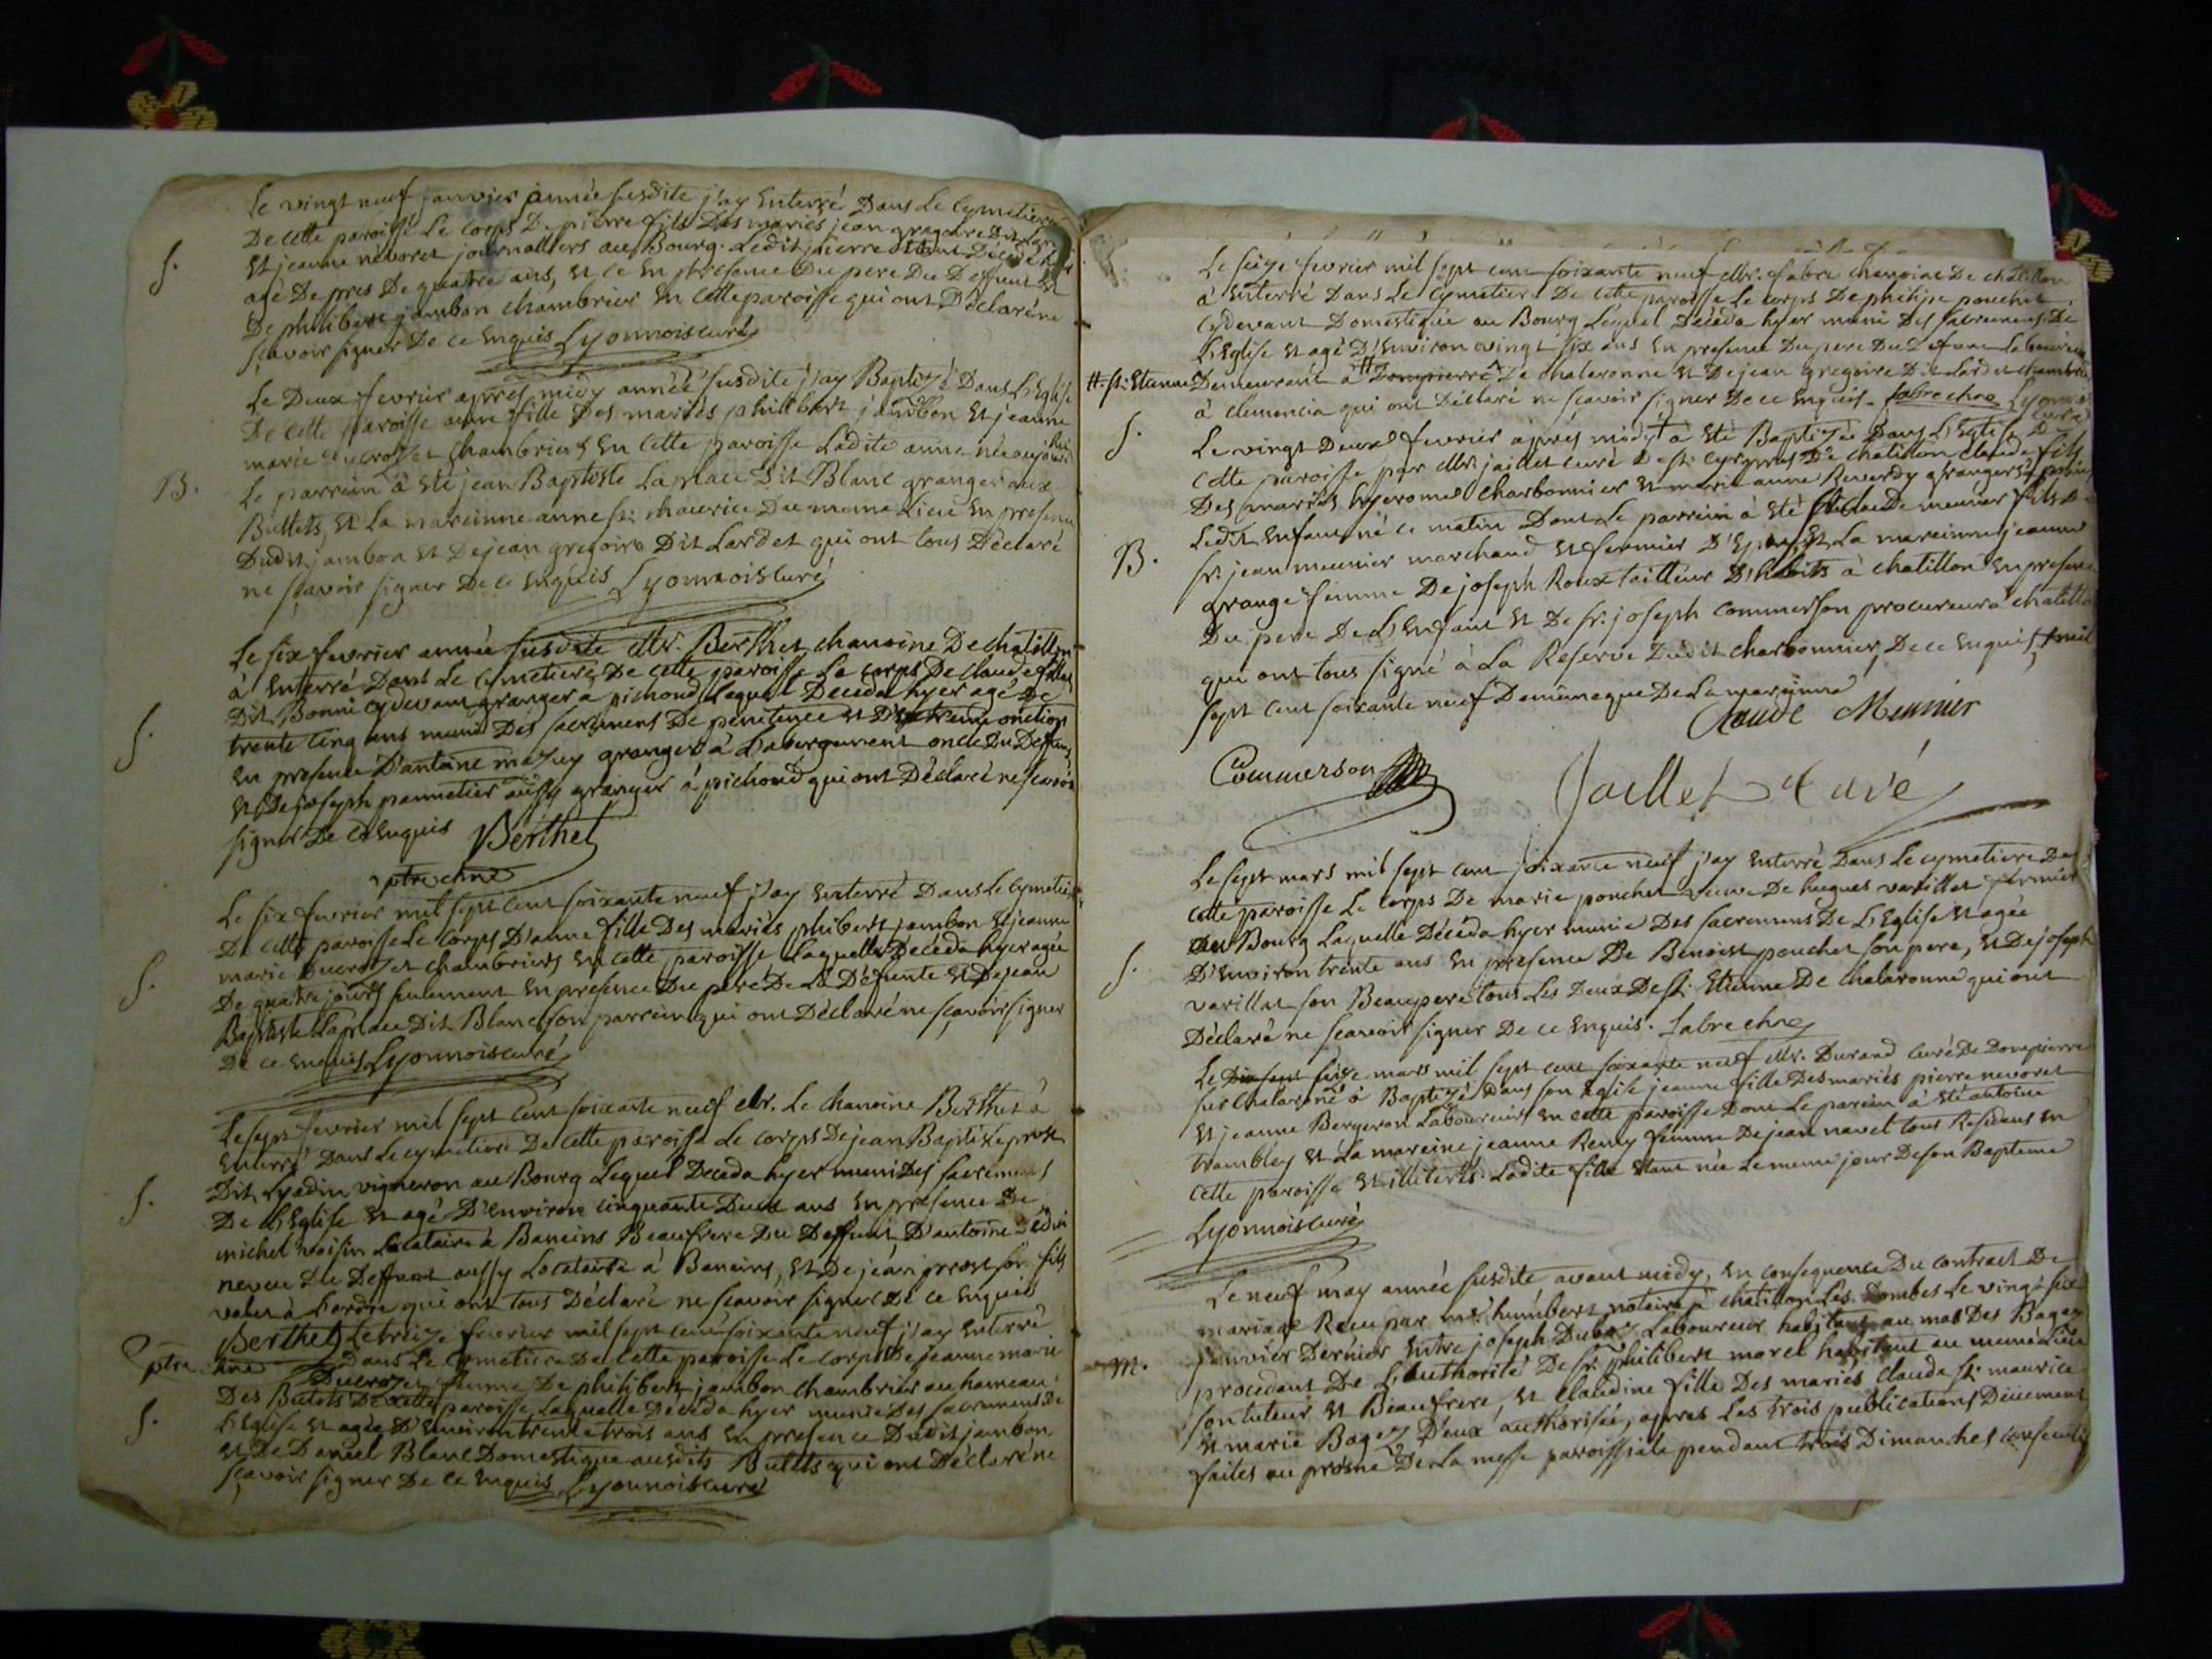 Le vingt neuf janvier année susdite j'ay Enterré Dans Le Cymetiere
De cette paroisse Le corps De pierre fils Des mariés jean gregoire Dit
Et jeanne nevoret journalliers au Bourg. Ledit pierre Etant Décédé
agé De pres De quatre ans, et ce En presence Du pere Du Deffunt Et
De philibert jambon chambrier En cette paroisse qui ont Déclaré ne
sçavoir signer De ce Enquis Lyonnois curé
S.
Le Deux fevrier apres midy année susdite j'ay Baptizé Dans L'Eglise
De cette paroisse anne fille Des mariés philibert jambon Et jeanne
marie Ducrozet chambriers En cette paroisse Ladite anne née aujourd'hui
Le parrain à été jean Baptiste Laplace Dit Blanc granger aux
Bullets, Et La marainne anne st. maurice Du meme Lieu En presence
Dudit jambon Et De jean gregoire Dit Lardet qui ont tous Déclaré
ne sçavoir signer De ce Enquis Lyonnois curé
B.
Le six fevrier année susdite Mr. Berthet chanoine De chatillon
à Enterré Dans Le Cymetiere De cette paroisse Le corps De Claude
Dit Bonne cydevant granger a pichoud Lequel Deceda hyer agé De
trente cinq ans muni Des sacremens De penitence et D'extreme onction
En presence D'antoine mazuy granger à L'abergement oncle Du Deffunt
Et De joseph pannetier aussy granger à pichoud qui ont Déclaré ne scavoir
signer De ce Enquis Berthet
ptre chne
S.
Le six fevrier mil sept cent soixante neuf j'ay Enterré Dans Le Cymetiere
De cette paroisse Le corps D'anne fille Des mariés phibert jambon Et jeanne
marie Ducrozet chambriers En cette paroisse Laquelle Deceda hyer agée
De quatre jours seulement En presence Du pere De La Défunte Et De jean
Baptiste Laplace Dit Blanc son parrein qui ont Déclaré ne sçavoir signer
De ce Enquis Lyonnois curé
S.
Le sept fevrier mil sept cent soixante neuf Mr. Le chanoine Berthet à
Enterré Dans Le cymetiere De cette paroisse Le corps De jean Baptiste prost
Dit Lyadin vigneron au Bourg Lequel Deceda hyer muni Des sacremens
De L'Eglise Et agé D'environ cinquante Deux ans En presence De
michel voisin Locataire à Baneins Beaufrere Du Deffunt D'antoine
neveu Du Deffunt aussy Locataire à Baneins, Et De jean prost son fils
valet à L'ordre qui ont tous Déclaré ne scavoir signer De ce Enquis
S.
Berthet Le treize fevrier mil sept cent soixante neuf j'ay Enterré
ptre chne Dans Le Cymetiere De cette paroisse Le corps De jeanne marie
Ducrozet femme De philibert jambon chambrier au hameau
Des Bulets De cette paroisse Laquelle Deceda hyer munie Des sacremens De
L'Eglise et agée D'Environ trente trois ans En presence Dudit jambon
et De Daniel Blanc Domestique ausdits Bulets qui ont Déclaré ne
sçavoir signer De ce Enquis Lyonnois curé
S.
Le seize fevrier mil sept cent soixante neuf Mr. fabre chanoine De chatillon
à Enterré Dans Le Cymetiere De cette paroisse Le corps De philipe ponchet
Cydevant Domestique au Bourg Lequel Deceda hyer muni Des sacremens De
L'Eglise et agé D'Environ vingt six ans En presence Du pere Du Defunt Laboureur
#. st. Etienne Demeurant à # Dompierre De chalaronne Et De jean gregoire Dit Lardet chambrier
à clemencia qui ont Déclaré ne scavoir signer De ce Enquis. fabre chne Lyonnois curé
S.
Le vingt Deux fevrier apres midy à été Baptizé Dans L'Eglise De
cette paroisse par Mr. jaillet curé De st. Cyr pres De chatillon claude fils
Des mariés hyerome Charbonnier Et marie anne Reverdy grangers
Ledit Enfant né ce matin Dont Le parrein à été claude meunier fils De
sr. jean meunier marchand Et fermier Et La marainne jeanne
grange femme De joseph Roux tailleur D'habits à chatillon En presence
Du pere De L'Enfant Et De sr. joseph Commerson procureur à chatillon
qui ont tous signé à La Reserve Dudit charbonnier, De ce Enquis, mil
sept cent soixante neuf De meme que De La marainne
B.
Claude Meunier
Commerson
Jaillet Curé
Le sept mars mil sept cent soixante neuf j'ay Enterré Dans Le cymetiere De
cette paroisse Le corps De marie ponchet veuve De hugues varillat fermier
au Bourg Laquelle Décéda hyer munie Des sacremens De L'Eglise Et agée
D'Environ trente ans En presence De Benoist ponchet son pere, Et De joseph
varillat son Beaupere tous Les Deux De st. Etienne De chalaronne qui ont
Déclaré ne scavoir signer De ce Enquis. fabre chne
S.
Le seize mars mil sept cent soixante neuf Mr. Durand curé De Dompierre
sur chalarone à Baptizé dans son Eglise jeanne fille Des mariés pierre nevoret
Et jeanne Bergeron Laboureurs En cette paroisse Dont Le parein à été antoine
trambley Et La mareine jeanne Remy femme De jean navel tous Residans En
cette paroisse Et illiterés. Ladite fille Etant née Le meme jour De son Bapteme
Lyonnois curé
Le neuf may année susdite avant midy, En consequence Du contract De
mariage Recu par me. humbert notaire à chatillon Les Dombes Le vingt six
janvier Dernier Entre joseph Dubaz Laboureur habitant au mas Des Bagez
procedant De L'authorité De sr. philibert morel habitant au meme Lieu
son tuteur Et Beaufrere, Et claudine fille Des mariés claude st. maurice
Et marie Bagez D'eux authorisée, apres Les trois publications Düement
faites au prosne De La messe paroissiale pendant trois Dimanches consecutifs
m.